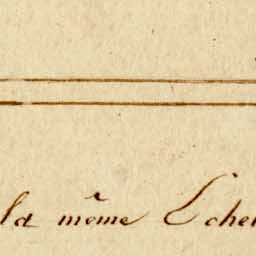 la même Echel